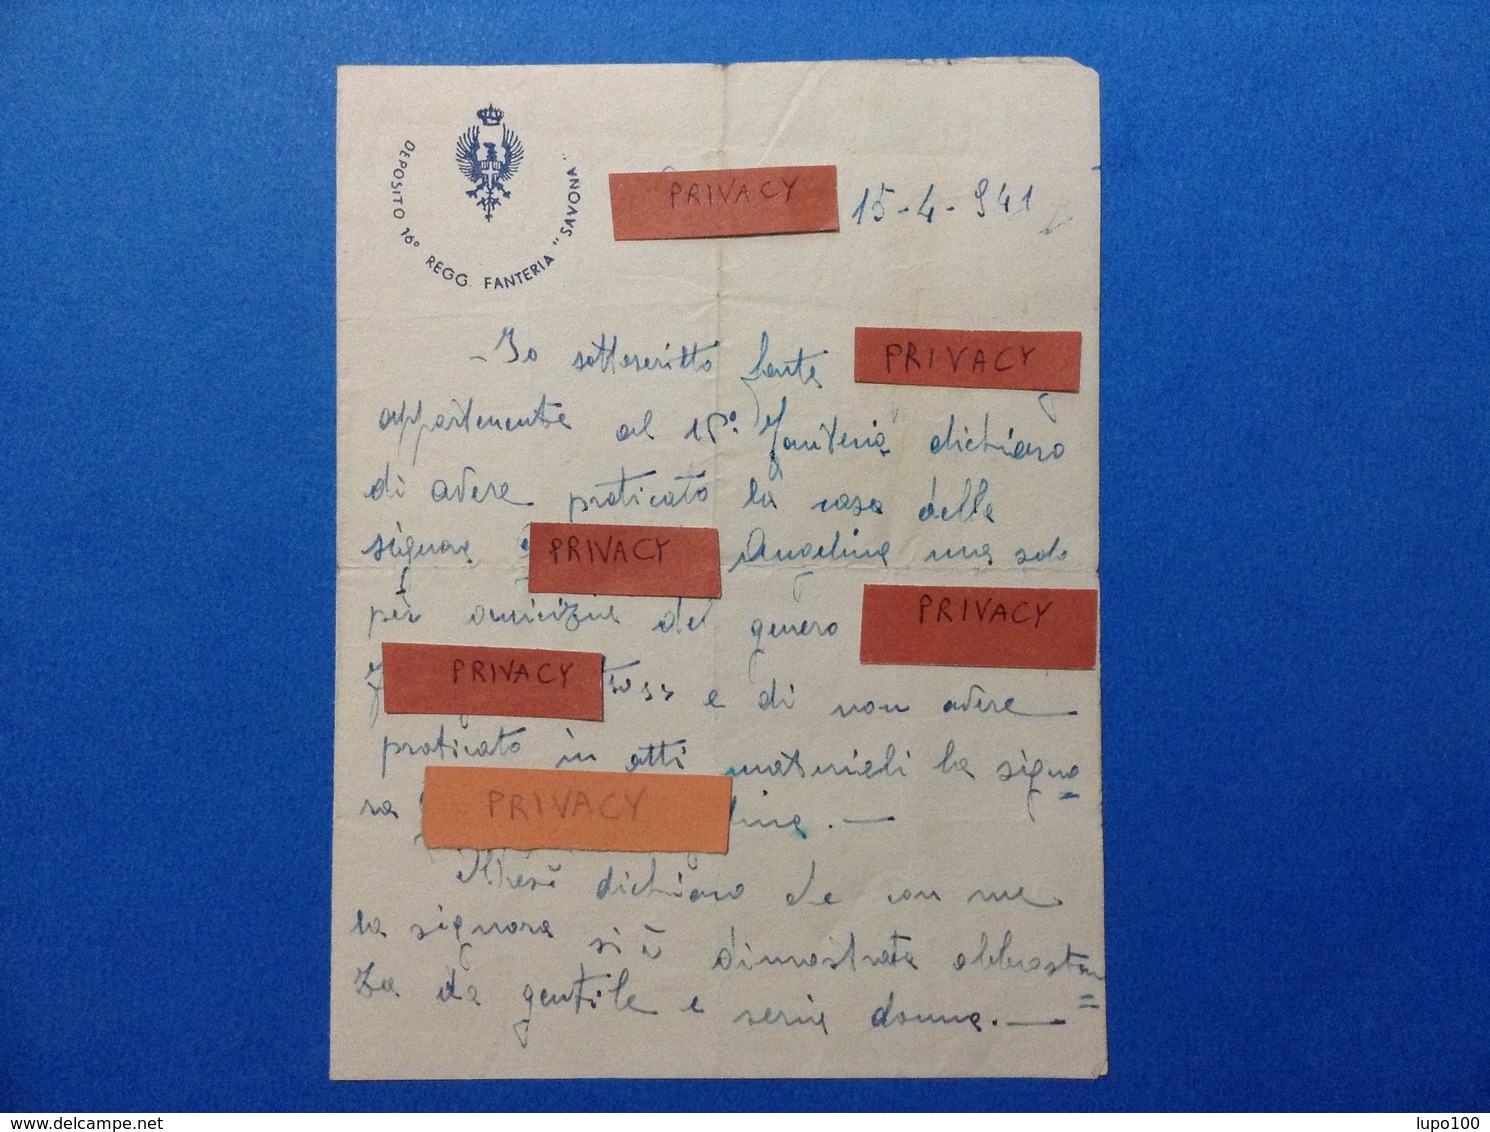 DEPOSITO 16° REGG. FANTERIA "SAVONA"
PRIVACY 15-4-941
- Io sottoscritto fante PRIVACY
appartenente al 15° Fanteria dichiaro
di avere praticato la casa della
signora PRIVACY Angelina ma solo
per amicizia del genero PRIVACY
PRIVACY e di non avere
praticato in atti materiali la signo=
ra PRIVACY lina. —
Altresì dichiaro che con me
la signora si è dimostrata abbastan=
za da gentile e seria donna. —
delcampe.net
lupo100